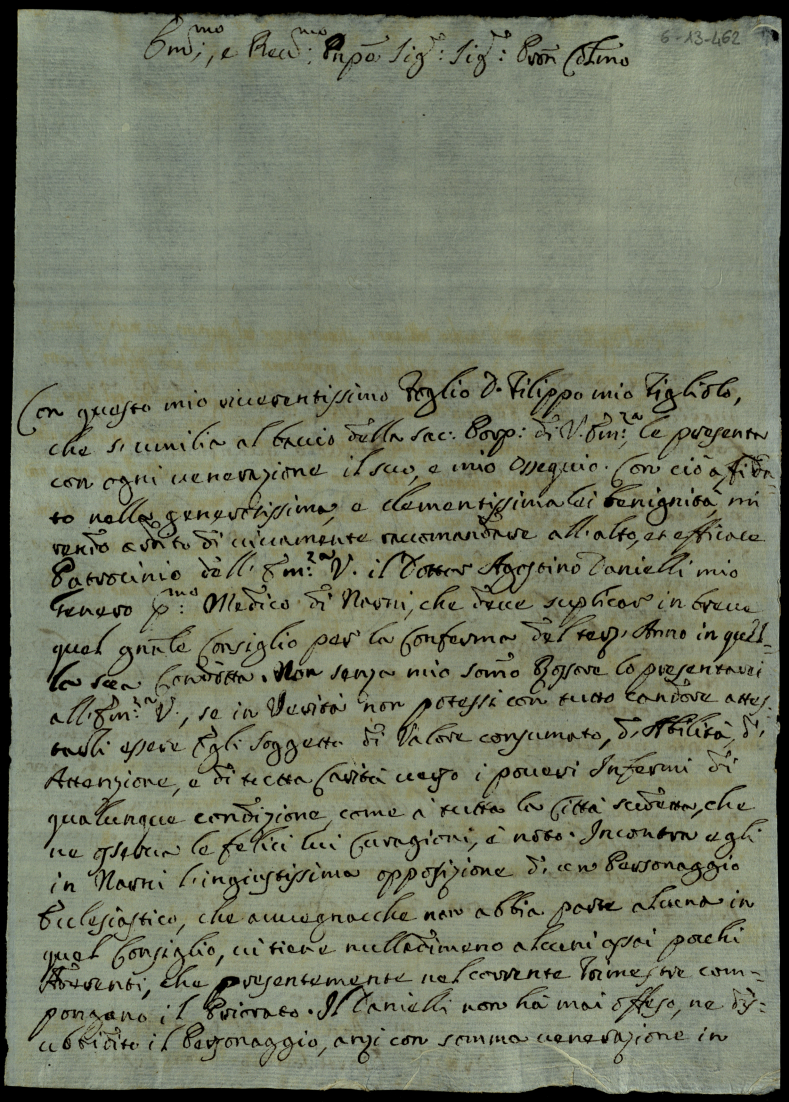 6-13-462
Em:mo, e Reu:mo Pnpe Sig: Sig: Pron Colmo
Con questo mio riuerentissimo Foglio D. Filippo mio Figliolo,
che s'umilia al baccio della Sac: Porp: di V. Em:za, le presenta
con ogni uenerazione il suo, e mio ossequio. Con ciò affida-
to nella generosissima, e clementissima lei benignità, mi
rendo ardito di uiuamente raccomandare all'alto, et efficace
Patrocinio dell'Em:za V. il Dottor Agostino Danielli mio
Genero p:mo Medico di Narni, che deue suplicar in breue
quel gnãle Consiglio per la Conferma del terz. Anno in quel-
la sua Condotta. Non senza mio somo Rossore lo presentarei
all'Em:za V., se in Verità non potessi con tutto candore attes-
tarli essere Egli Soggetto di Valore consumato, d'Abilità, di
Attenzione, e di tutta Carità uerso i poueri Infermi di
qualunque condizione, come à tutta la Città sudetta, che
ne osserua le felici lui Curagioni, è noto. Incontra egli
in Narni l'ingiustissima opposizione di un Personaggio
Eclesiastico, che auuegnacche non abbia parte alcuna in
quel Consiglio, ui tiene nulladimeno alcuni assai pochi
Aderenti, che presentemente nel corrente Trimestre com-
pongano il Priorato. Il Danielli non hà mai offeso, ne dis-
ubbidito il Personaggio, anzi con somma uenerazione in